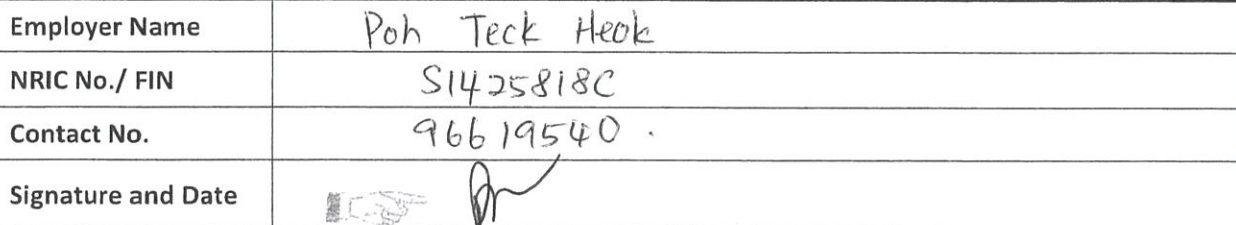 Employer Name Poh Teck Heok
NRIC No./ FIN S1425818C
Contact No. 96619540.
Signature and Date